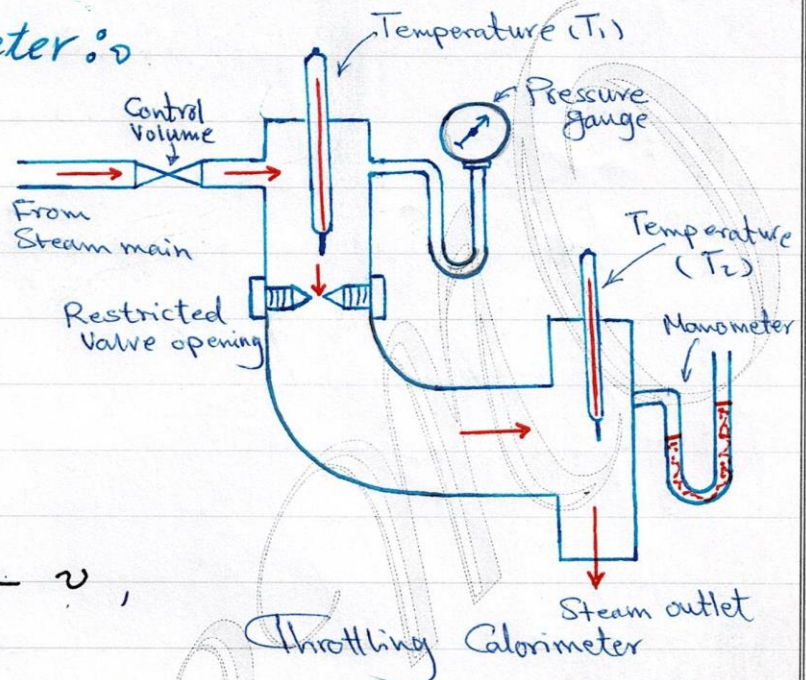 eter :
Temperature (T₁)
Control
Volume
Pressure
gauge
From
Steam main
Temperature
(T₂)
Manometer
Restricted
Valve opening
Steam outlet
Throttling Calorimeter